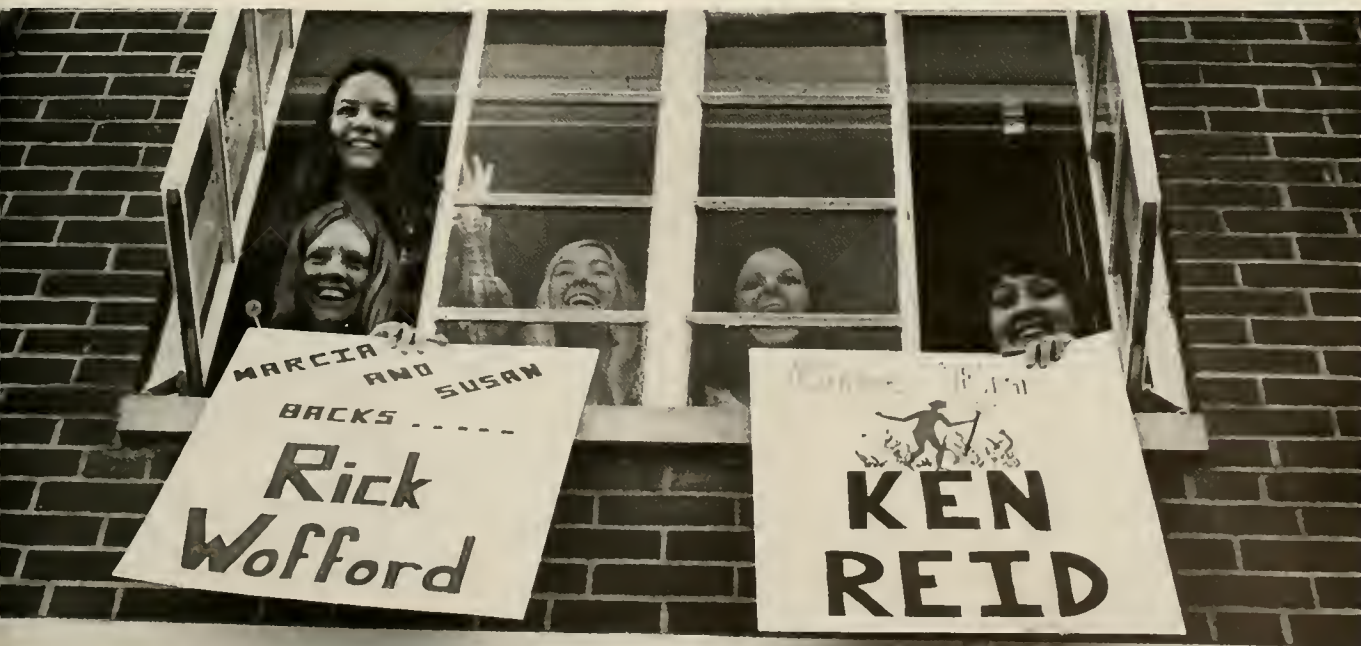 MARCIA
AND
SUSAN
BACKS.....
Rick
Wofford
KEN
REID